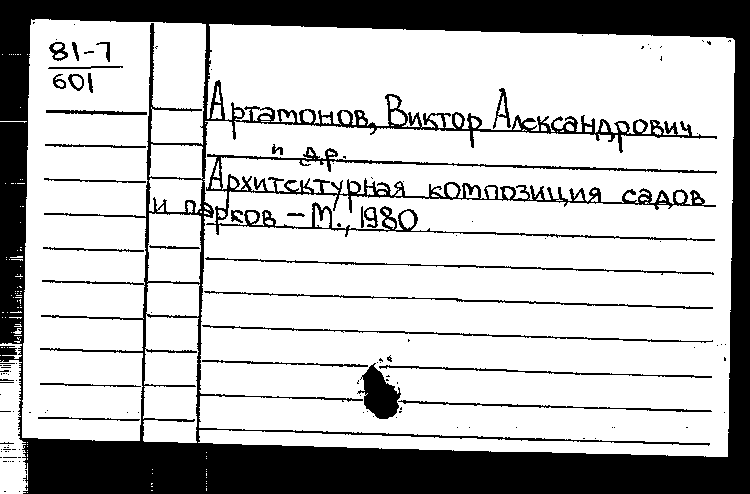 81-7
601
Артамонов, Виктор Александрович
и др.
Архитектурная композиция садов
и парков. – М., 1980.